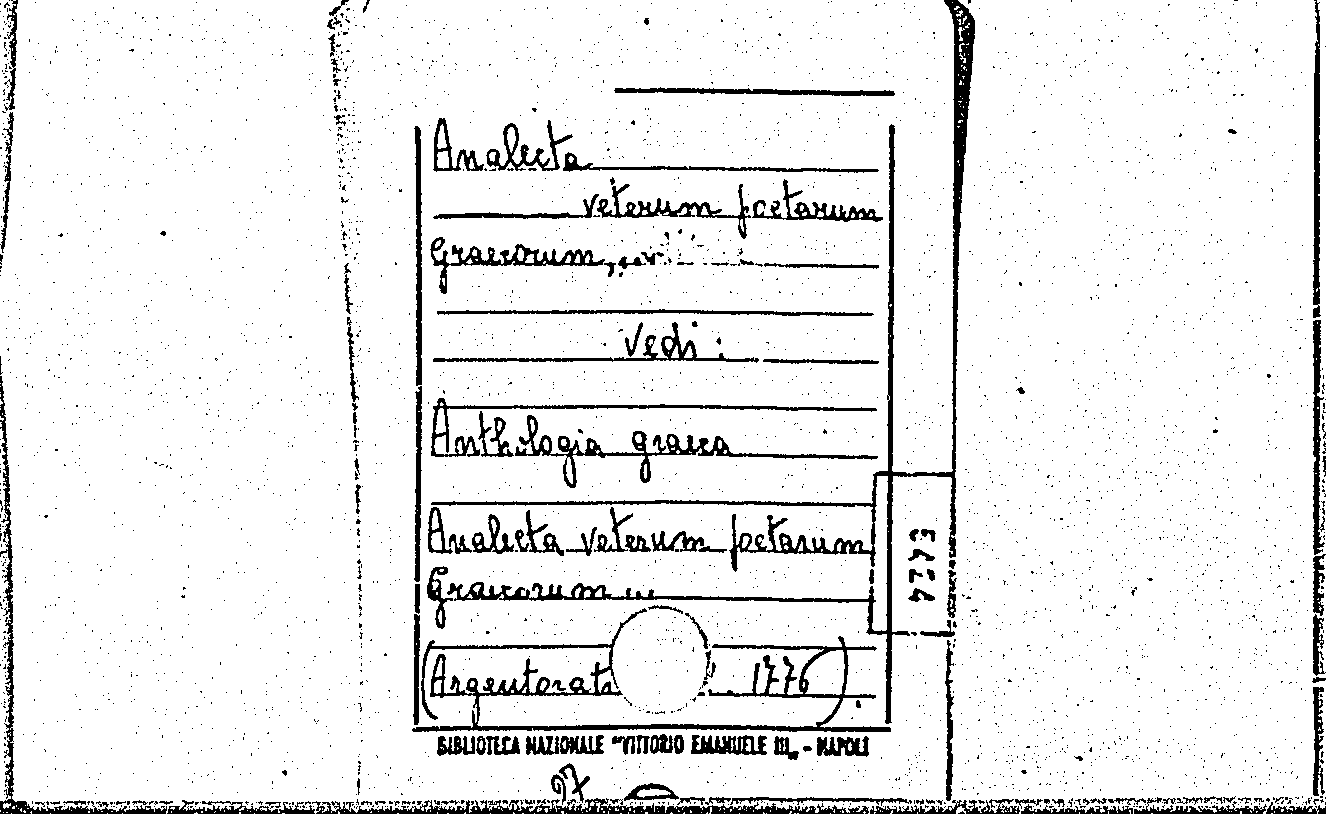 Analecta
veterum poetarum
Graecorum,
Vedi:
Anthologia graeca
Analecta veterum poetarum
Graecorum ...
(Argentorati 1776).
BIBLIOTECA NAZIONALE "VITTORIO EMANUELE III„ - NAPOLI
97